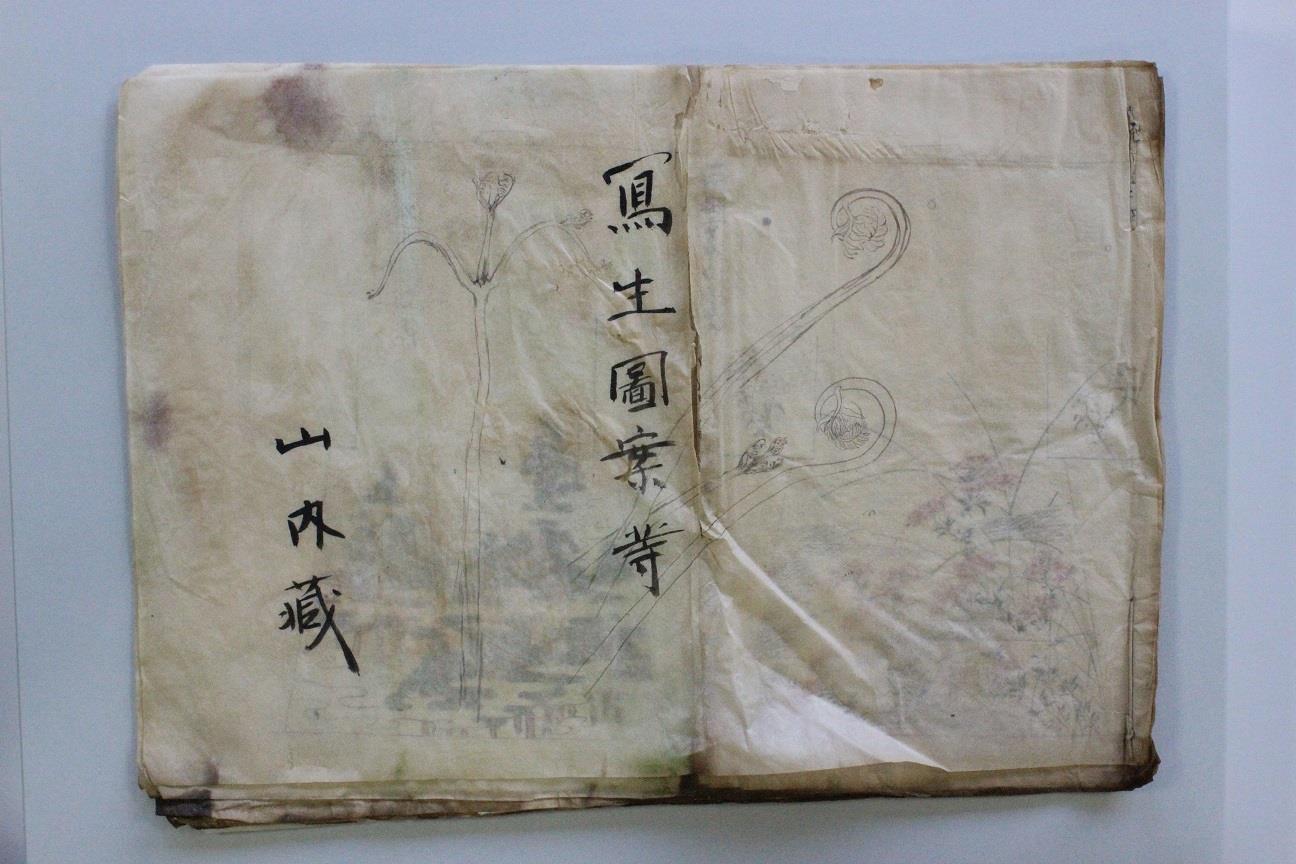 寫生圖案等
山内藏